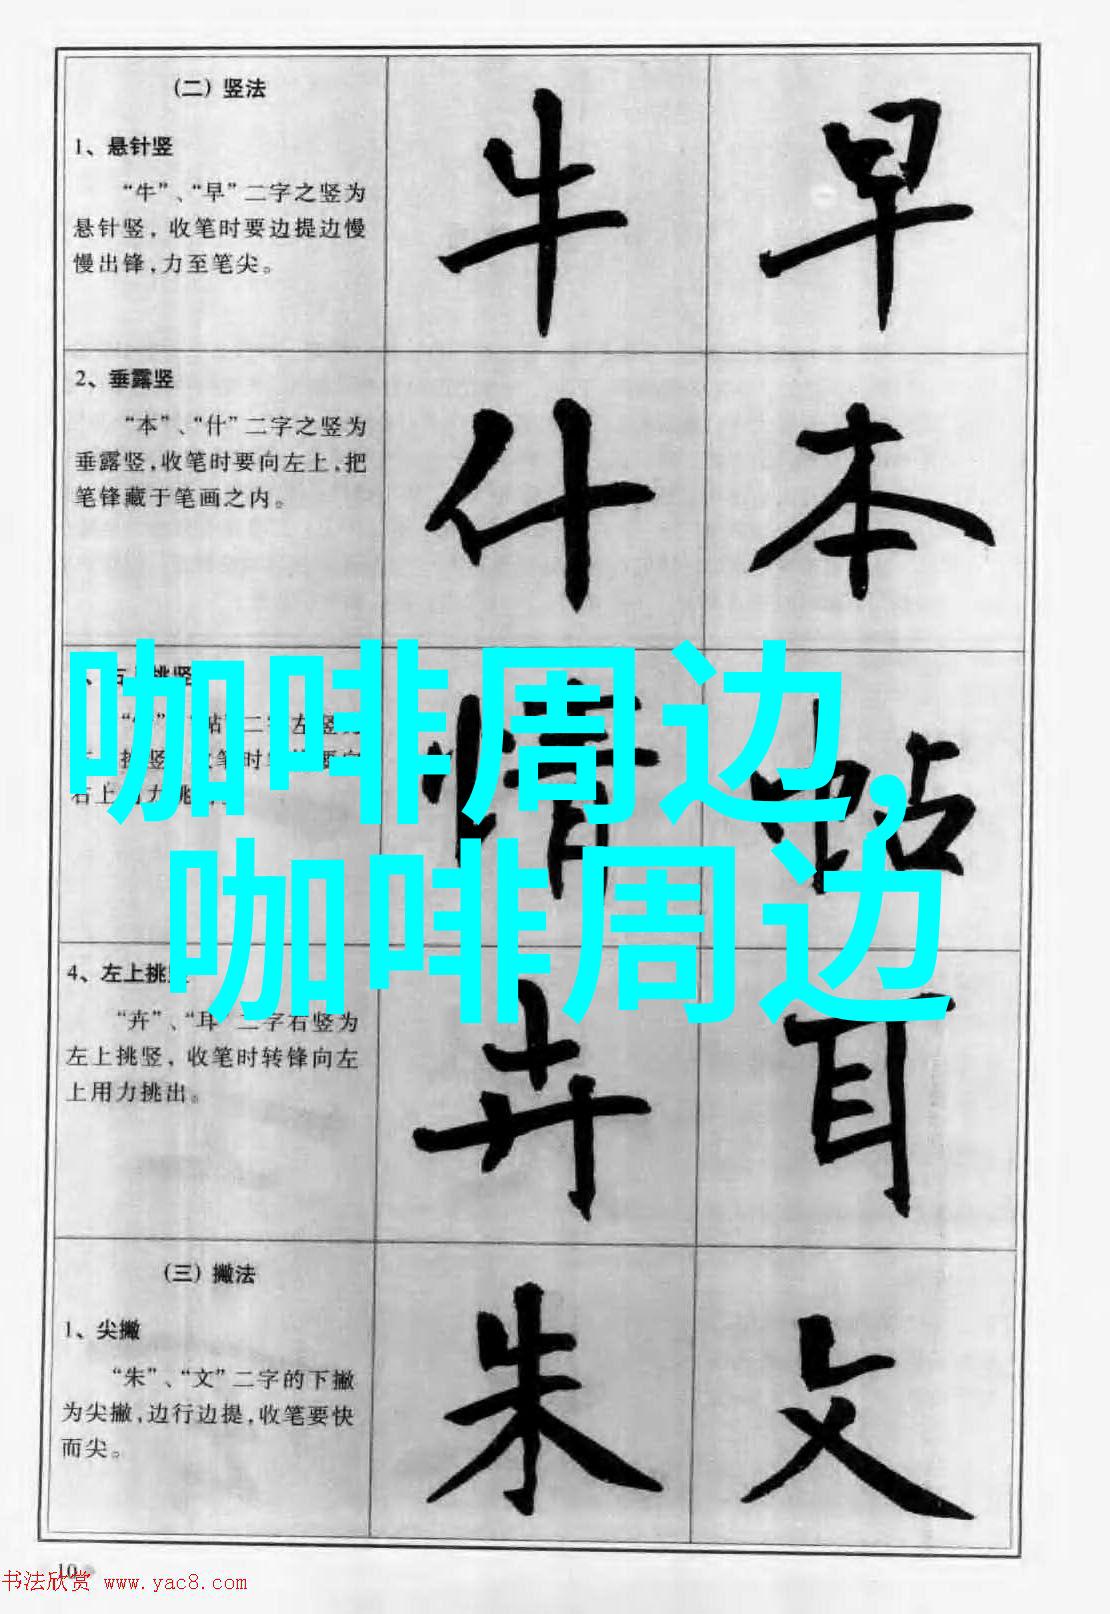 (二) 竖法
1、悬针竖
“牛”、“早”二字之竖为
悬针竖, 收笔时要边提边慢
慢出锋,力至笔尖。
牛 早
2、垂露竖
“本”、“什”二字之竖为
垂露竖,收笔时要向左上,把
笔锋藏于笔画之内。
什 本
咖啡周边,
咖啡周边
情 帖
4、左上挑
“卉”、“耳”二字右竖为
左上挑竖, 收笔时转锋向左
上用力挑出。
卉 耳
(三) 撇法
1、尖撇
“朱”、“文”二字的下撇
为尖撇,边行边提,收笔要快
而尖。
朱 文
10
书法欣赏 www.yac8.com